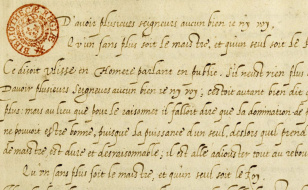 D'avoir plusieurs seigneurs aucun bien ie ny voy,
Qu'un sans plus soit le maistre, et qu'un seul soit le
Ce disoit Ulisse en Homere parlant en public. S'il n'eust rien plus
D'avoir plusieurs seigneurs aucun bien ie n'y voy, estoit autant bien dit
plus: mais au lieu que pour le raisonner il falloit dire que la domination de
ne pouvoit estre bonne, puisque la puissance d'un seul, deslors quil prend
de maistre est dure et desraisonnable, il est allé adiouster tout au rebou
Qu'un sans plus soit le maistre, et qu'un seul soit le Roy.